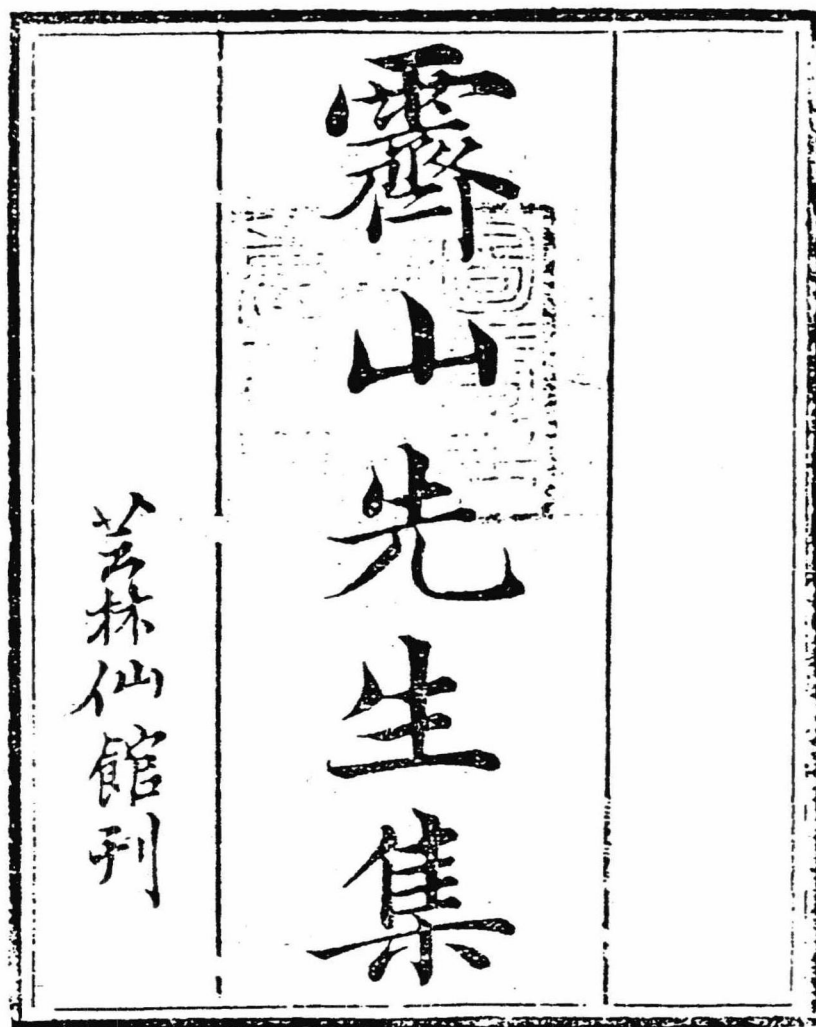 霽山先生集
芸林仙館刊